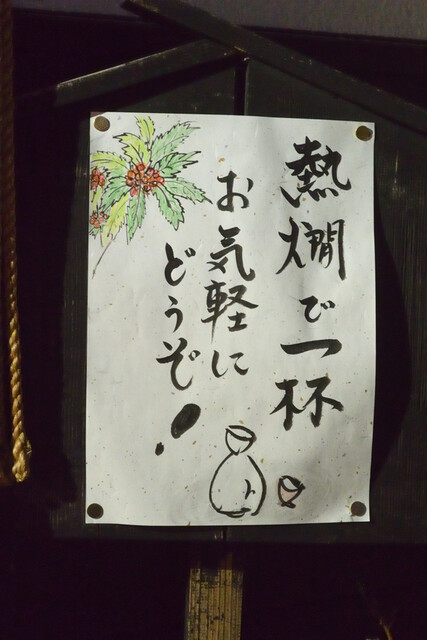 熱燗で一杯
お気軽に
どうぞ!